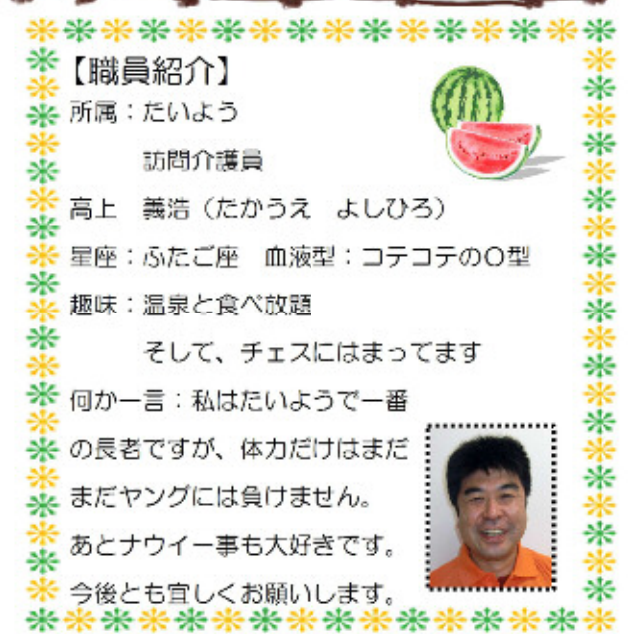 【職員紹介】
所属：たいよう
訪問介護員
高上　義浩（たかうえ　よしひろ）
星座：ふたご座　血液型：コテコテのO型
趣味：温泉と食べ放題
そして、チェスにはまってます
何か一言：私はたいようで一番
の長老ですが、体力だけはまだ
まだヤングには負けません。
あとナウイ一事も大好きです。
今後とも宜しくお願いします。